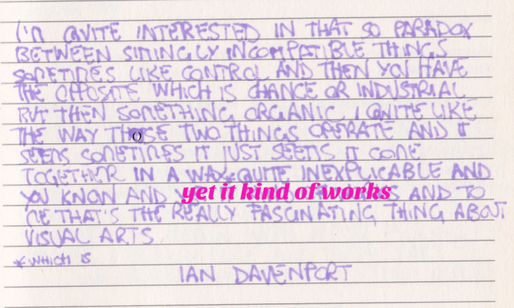 I'M QUITE INTERESTED IN THAT SO PARADOX
BETWEEN SIMINGLY INCOMPATIBLE THINGS
SOMETIMES LIKE CONTROL AND THEN YOU HAVE
THE OPPOSITE WHICH IS CHANCE OR INDUSTRIAL
BUT THEN SOMETHING ORGANIC I QUITE LIKE
THE WAY THOSE TWO THINGS OPERATE AND IT
SEEMS SOMETIMES IT JUST SEEMS IT COME
TOGETHER IN A WAY QUITE INEXPLICABLE AND
YOU KNOW AND yet it kind of works AND TO
ME THAT'S THE REALLY FASCINATING THING ABOUT
VISUAL ARTS
*WHICH IS
IAN DAVENPORT